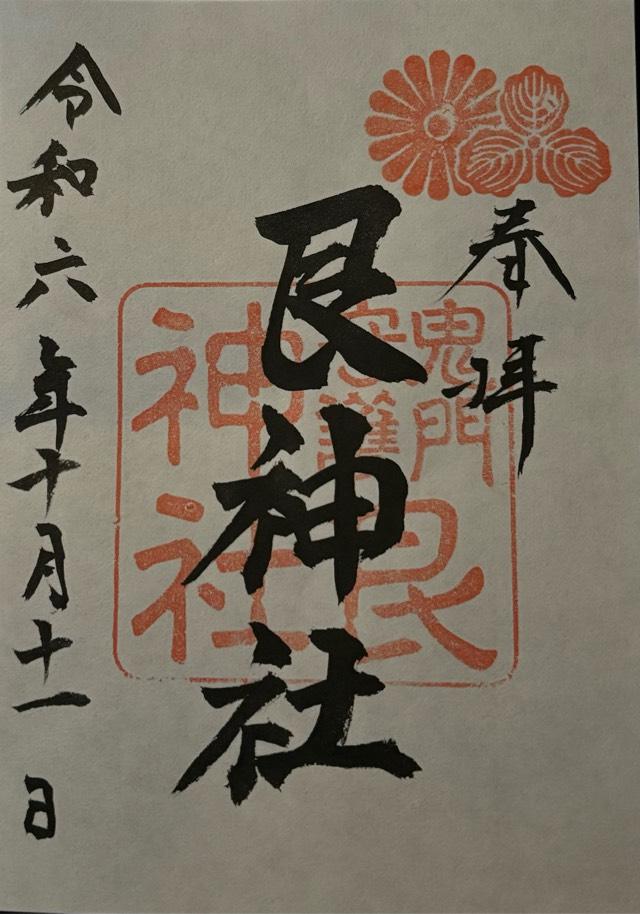 奉拝
鬼門
守護
艮
神社
艮神社
令和六年十月十一日